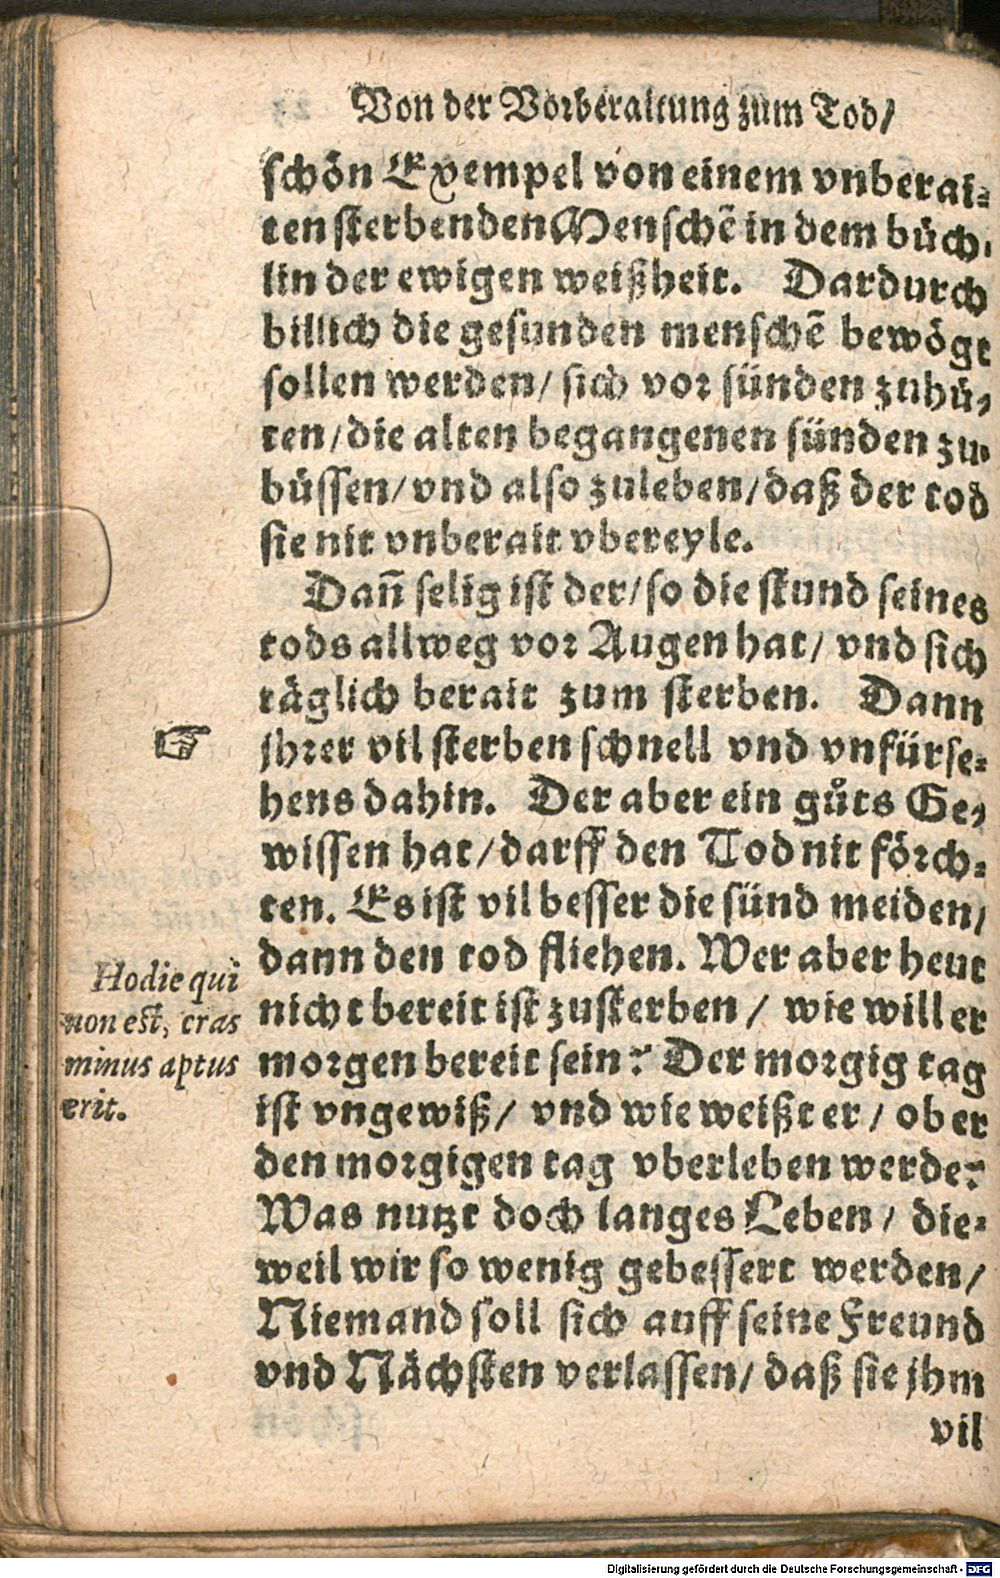 Von der Vorberaitung zum Tod/
schön Exempel von einem vnberai-
ten sterbenden Menschẽ in dem büch-
lin der ewigen weißheit. Dardurch
billich die gesunden menschẽ bewögt
sollen werden/ sich vor sünden zuhü-
ten/ die alten begangenen sünden zu-
büssen/ vnd also zuleben/ daß der tod
sie nit vnberait vbereyle.
Dañ selig ist der/ so die stund seines
tods allweg vor Augen hat/ vnd sich
täglich berait zum sterben. Dann
jhrer vil sterben schnell vnd vnfürse-
hens dahin. Der aber ein gůts Ge-
wissen hat/ darff den Tod nit förch-
ten. Es ist vil besser die sünd meiden/
dann den tod fliehen. Wer aber heut
Hodie qui
non est, cras
minus aptus
erit.
nicht bereit ist zusterben/ wie will er
morgen bereit sein? Der morgig tag
ist vngewiß/ vnd wie weißt er/ ob er
den morgigen tag vberleben werde?
Was nutzt doch langes Leben/ die-
weil wir so wenig gebessert werden/
Niemand soll sich auff seine Freund
vnd Nächsten verlassen/ daß sie jhm
vil
Digitalisierung gefördert durch die Deutsche Forschungsgemeinschaft - DFG